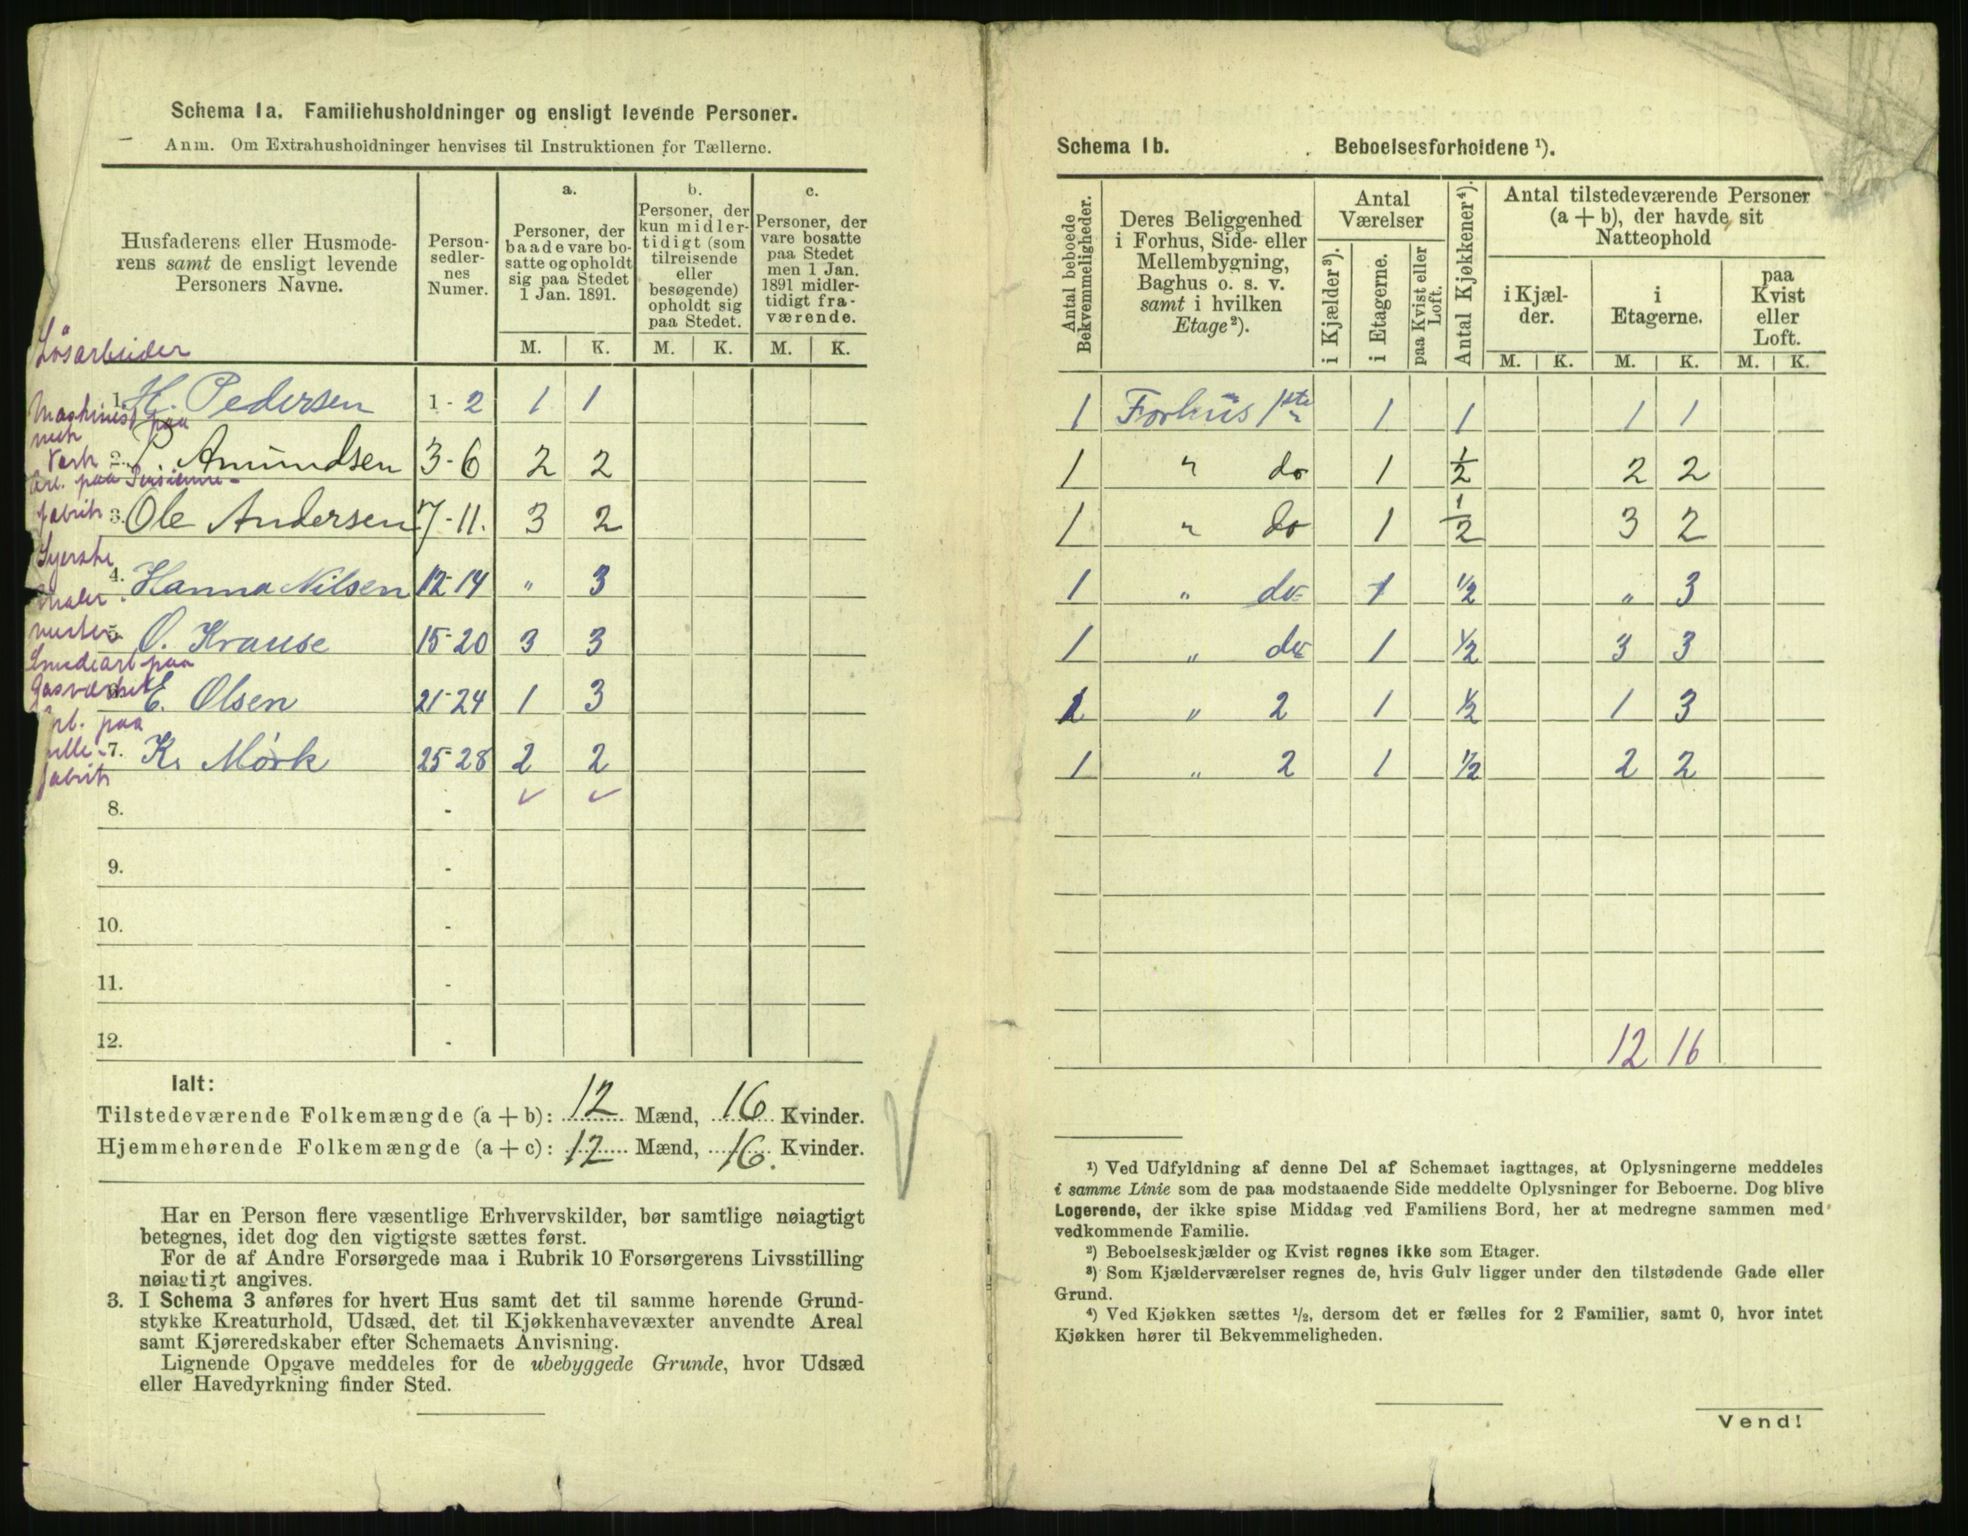 Schema 1a. Familiehusholdninger og ensligt levende Personer.
Anm. Om Extrahusholdninger henvises til Instruktionen for Tællerne.
Husfaderens eller Husmoderens samt de ensligt levende Personers Navne.
Personsedlernes Numer.
a. Personer, der baade vare bosatte og opholdt sig paa Stedet 1 Jan. 1891.
b. Personer, der kun midlertidigt (som tilreisende eller besøgende) opholdt sig paa Stedet.
c. Personer, der vare bosatte paa Stedet men 1 Jan. 1891 midlertidigt fraværende.
M. K. M. K. M. K.
Løsarbeider
1. H. Pedersen 1-2 1 1
Maskinist paa
mek
Værk
2. P. Amundsen 3-6 2 2
Arb. paa
fabrik
3. Ole Andersen 7-11. 3 2
Syerske
4. Hanna Nilsen 12-14 " 3
Maler
mester
5. O. Krause 15-20 3 3
Smedearb paa
Gasværket
6. E. Olsen 21-24 1 3
Arb. paa
fabrik
7. K. Mørk 25-28 2 2
8. -
9. -
10. -
11. -
12. -
Ialt:
Tilstedeværende Folkemængde (a + b): 12 Mænd, 16 Kvinder.
Hjemmehørende Folkemængde (a + c): 12 Mænd, 16. Kvinder.
Har en Person flere væsentlige Erhvervskilder, bør samtlige nøiagtigt
betegnes, idet dog den vigtigste sættes først.
For de af Andre Forsørgede maa i Rubrik 10 Forsørgerens Livsstilling
nøiagtigt angives.
3. I Schema 3 anføres for hvert Hus samt det til samme hørende Grund-
stykke Kreaturhold, Udsæd, det til Kjøkkenhavevæxter anvendte Areal
samt Kjøreredskaber efter Schemaets Anvisning.
Lignende Opgave meddeles for de ubebyggede Grunde, hvor Udsæd
eller Havedyrkning finder Sted.
Schema 1b. Beboelsesforholdene ¹).
Antal beboede Bekvemmeligheder.
Deres Beliggenhed i Forhus, Side- eller Mellembygning, Baghus o. s. v. samt i hvilken Etage²).
Antal Værelser
i Kjælder³).
i Etagerne.
paa Kvist eller Loft.
Antal Kjøkkener⁴).
Antal tilstedeværende Personer (a + b), der havde sit Natteophold
i Kjælder.
i Etagerne.
paa Kvist eller Loft.
M. K. M. K. M. K.
1 Forhus 1ste 1 1 1 1
1 " do 1 ½ 2 2
1 " do 1 ½ 3 2
1 " do 1 ½ " 3
1 " do 1 ½ 3 3
1 " 2 1 ½ 1 3
1 " 2 1 ½ 2 2
12 16
¹) Ved Udfyldning af denne Del af Schemaet iagttages, at Oplysningerne meddeles
i samme Linie som de paa modstaaende Side meddelte Oplysninger for Beboerne. Dog blive
Logerende, der ikke spise Middag ved Familiens Bord, her at medregne sammen med
vedkommende Familie.
²) Beboelseskjælder og Kvist regnes ikke som Etager.
³) Som Kjælderværelser regnes de, hvis Gulv ligger under den tilstødende Gade eller
Grund.
⁴) Ved Kjøkken sættes ½, dersom det er fælles for 2 Familier, samt 0, hvor intet
Kjøkken hører til Bekvemmeligheden.
Vend!